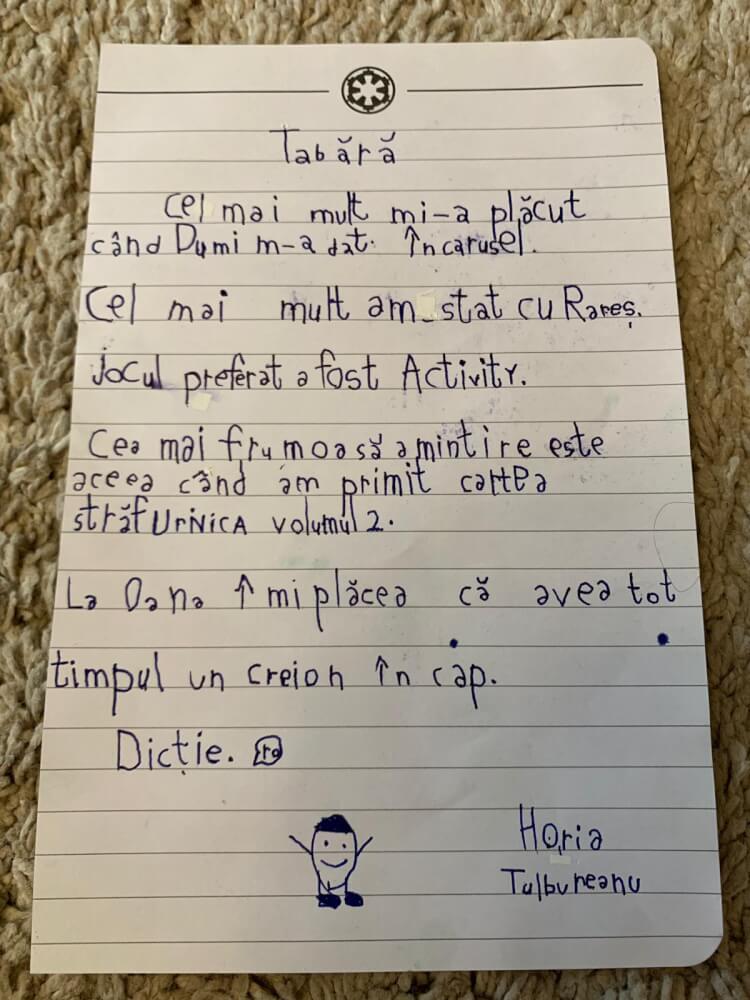 Tabără
Cel mai mult mi-a plăcut
când Dumi m-a dat în carusel.
Cel mai mult am stat cu Rareș.
jocul preferat a fost Activity.
Cea mai frumoasă amintire este
aceea când am primit cartea
străfURNICA volumul 2.
La Oana îmi plăcea că avea tot
timpul un creion în cap.
Dicție.
Horia
Tulbureanu